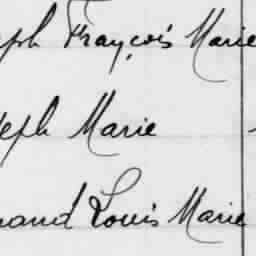 eph Françcois Marie
seph Marie
nand Louis Marie